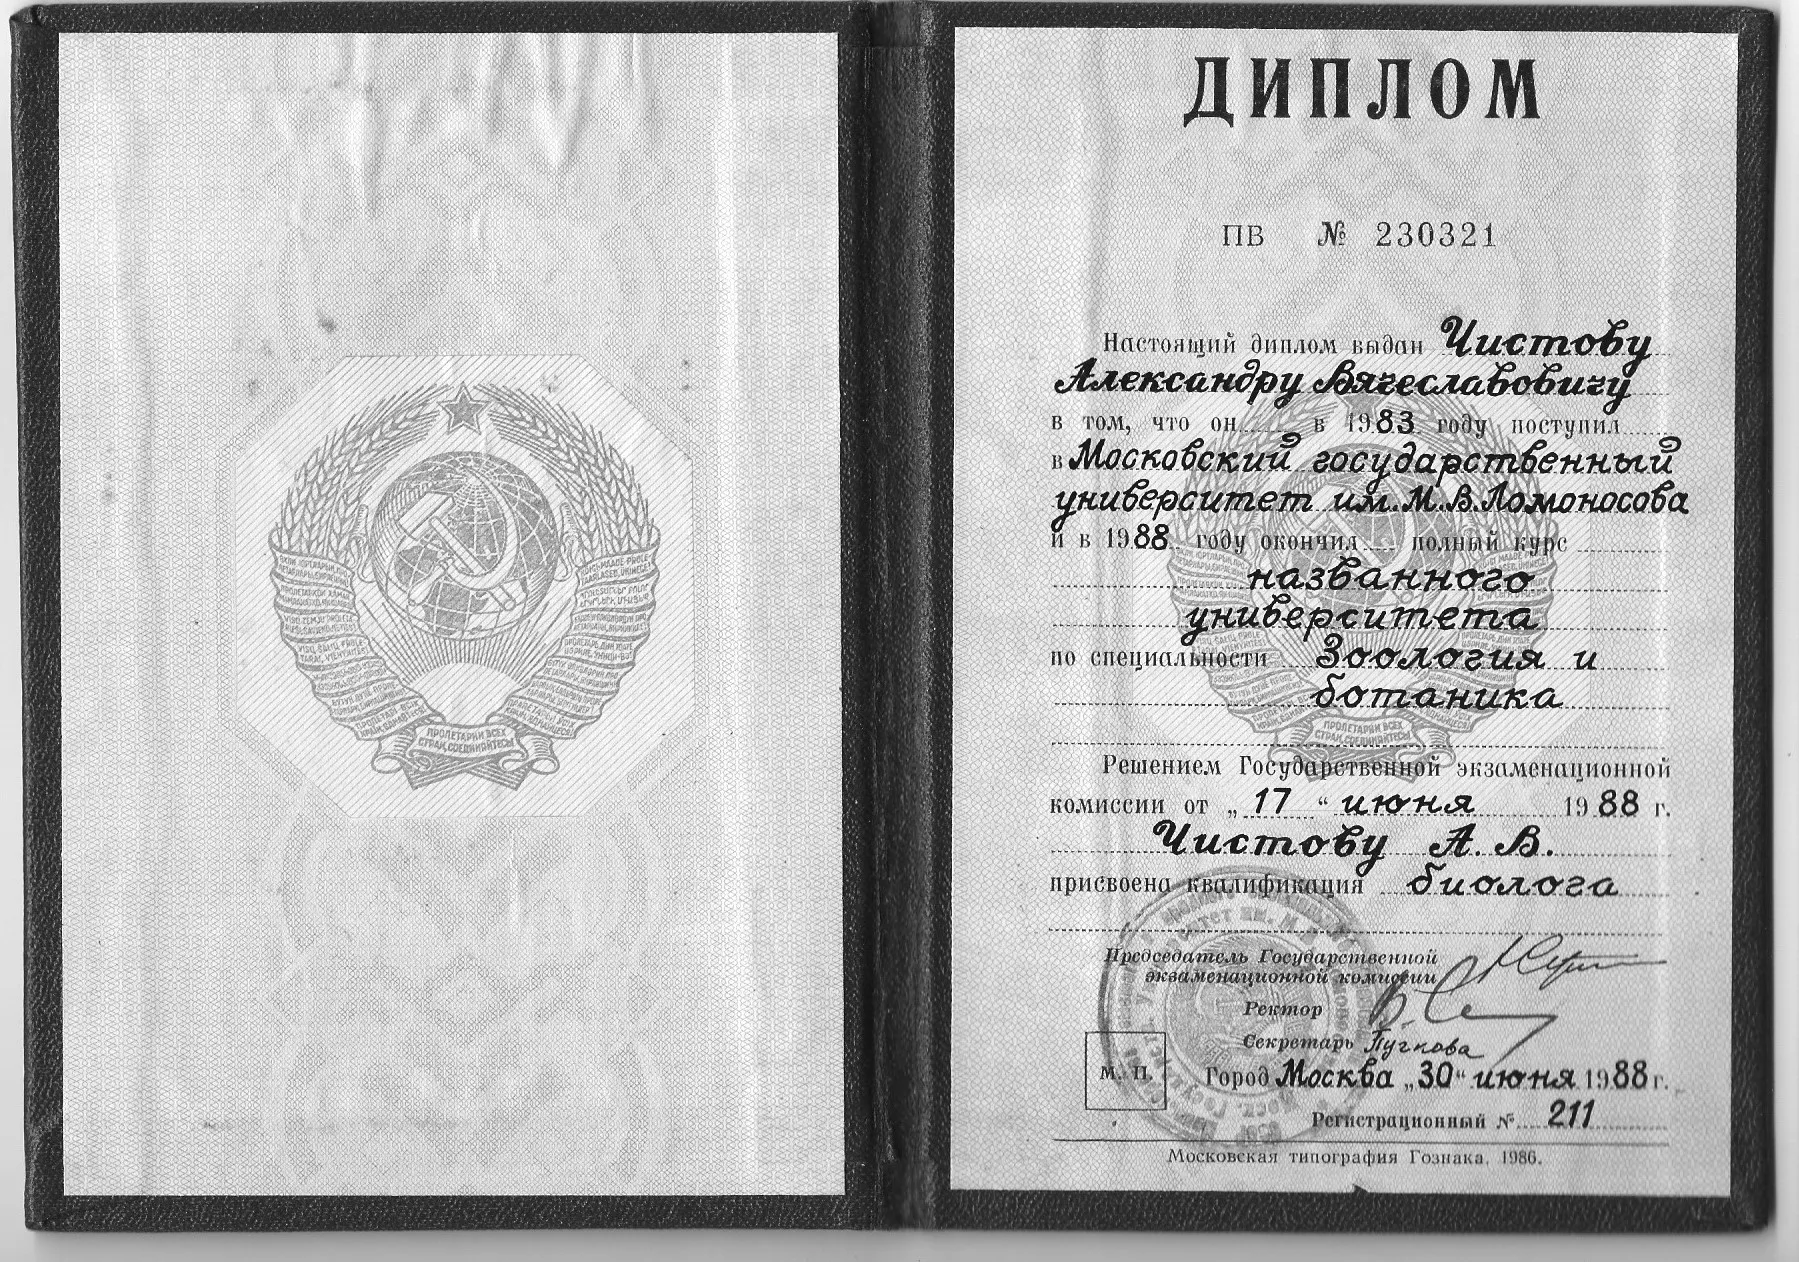 ПРОЛЕТАРИИ ВСЕХ
СТРАН, СОЕДИНЯЙТЕСЬ!
ДИПЛОМ
ПВ № 230321
Настоящий диплом выдан Чистову
Александру Вячеславовичу
в том, что он в 1983 году поступил
в Московский государственный
университет им. М. В. Ломоносова
и в 1988 году окончил полный курс
названного
университета
по специальности Зоология и
ботаника
ПРОЛЕТАРИИ ВСЕХ
СТРАН, СОЕДИНЯЙТЕСЬ!
Решением Государственной экзаменационной
комиссии от „17“ июня 1988 г.
Чистову А. В.
присвоена квалификация биолога
Председатель Государственной
экзаменационной комиссии
Ректор
Секретарь Пучкова
М. П. Город Москва „30“ июня 1988 г.
Регистрационный № 211
Московская типография Гознака. 1986.